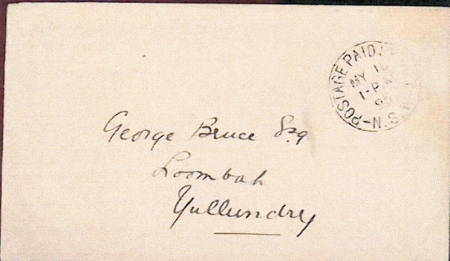 POSTAGE PAID
MY 1
1-P
N.S.
George Bruce Esq
Loombah
Yullundry